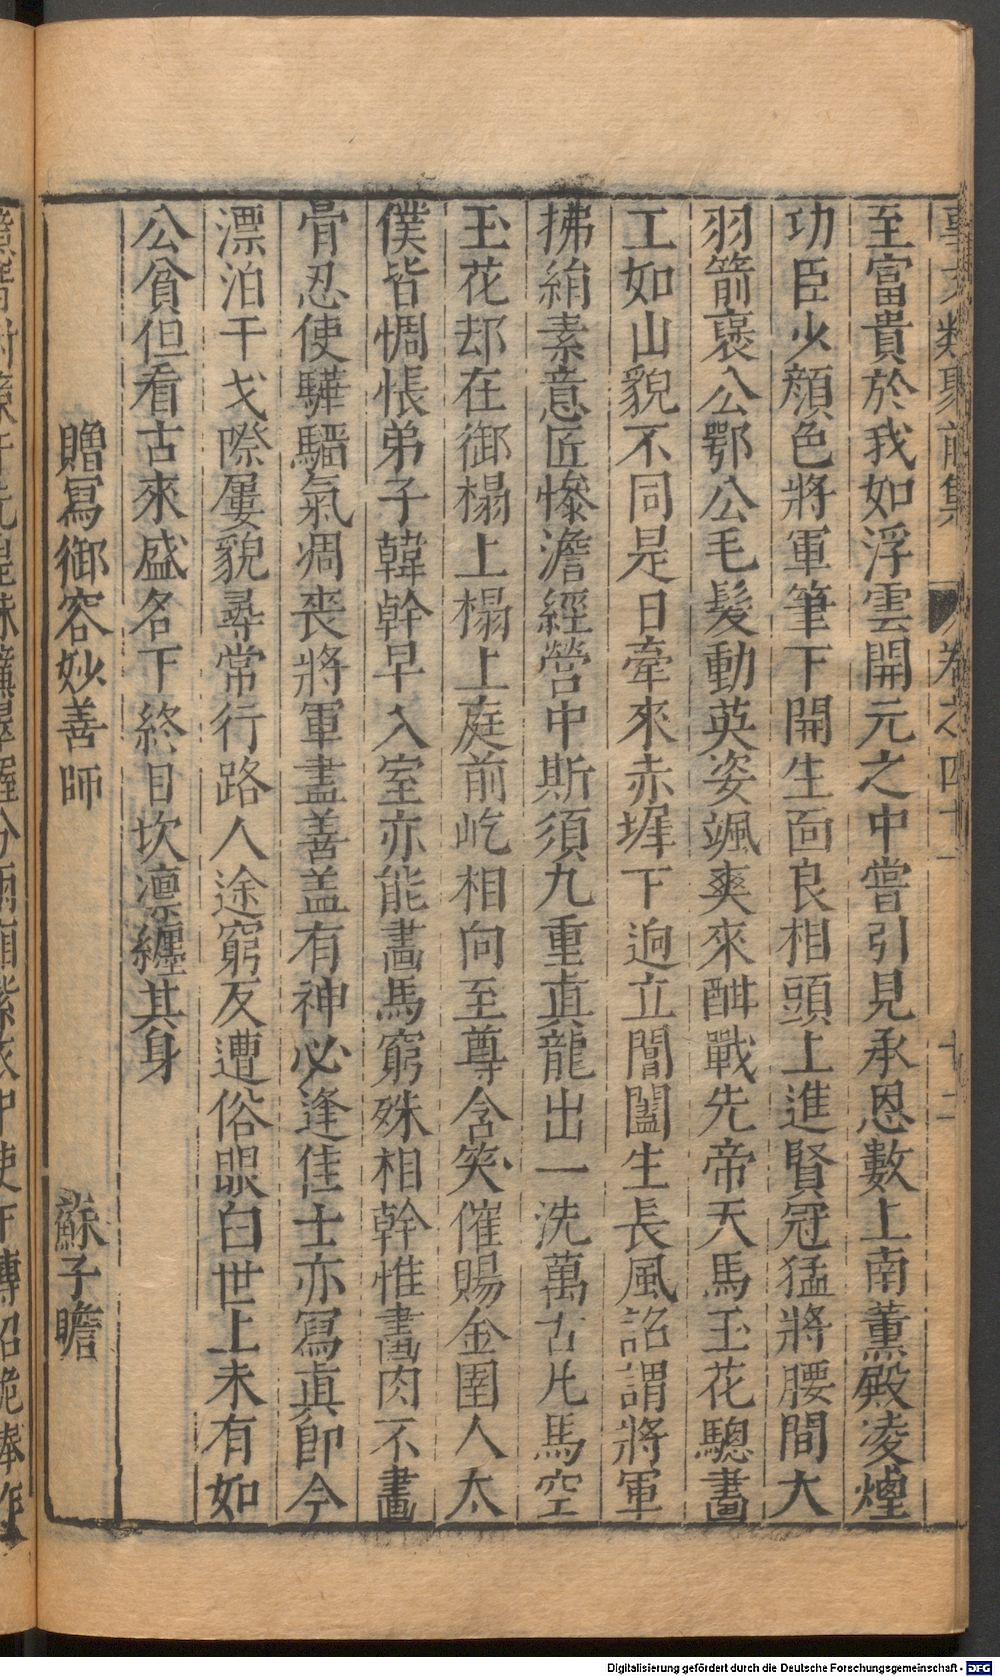 事文類聚前集 卷之四十 十二
至富貴於我如浮雲開元之中嘗引見承恩數上南薰殿凌煙
功臣少顏色將軍筆下開生面良相頭上進賢冠猛將腰間大
羽箭褒公鄂公毛髮動英姿颯爽來酣戰先帝天馬玉花驄畫
工如山貌不同是日牽來赤墀下逈立閶闔生長風詔謂將軍
拂絹素意匠慘澹經營中斯須九重真龍出一洗萬古凡馬空
玉花却在御榻上榻上庭前屹相向至尊含笑催賜金圉人太
僕皆惆悵弟子韓幹早入室亦能畫馬窮殊相幹惟畫肉不畫
骨忍使驊騮氣凋喪將軍盡善盖有神必逢佳士亦寫真即今
漂泊干戈際屢貌尋常行路人途窮反遭俗眼白世上未有如
公貧但看古來盛名下終日坎凛纏其身
贈寫御容妙善師 蘇子瞻
Digitalisierung gefördert durch die Deutsche Forschungsgemeinschaft - DFG